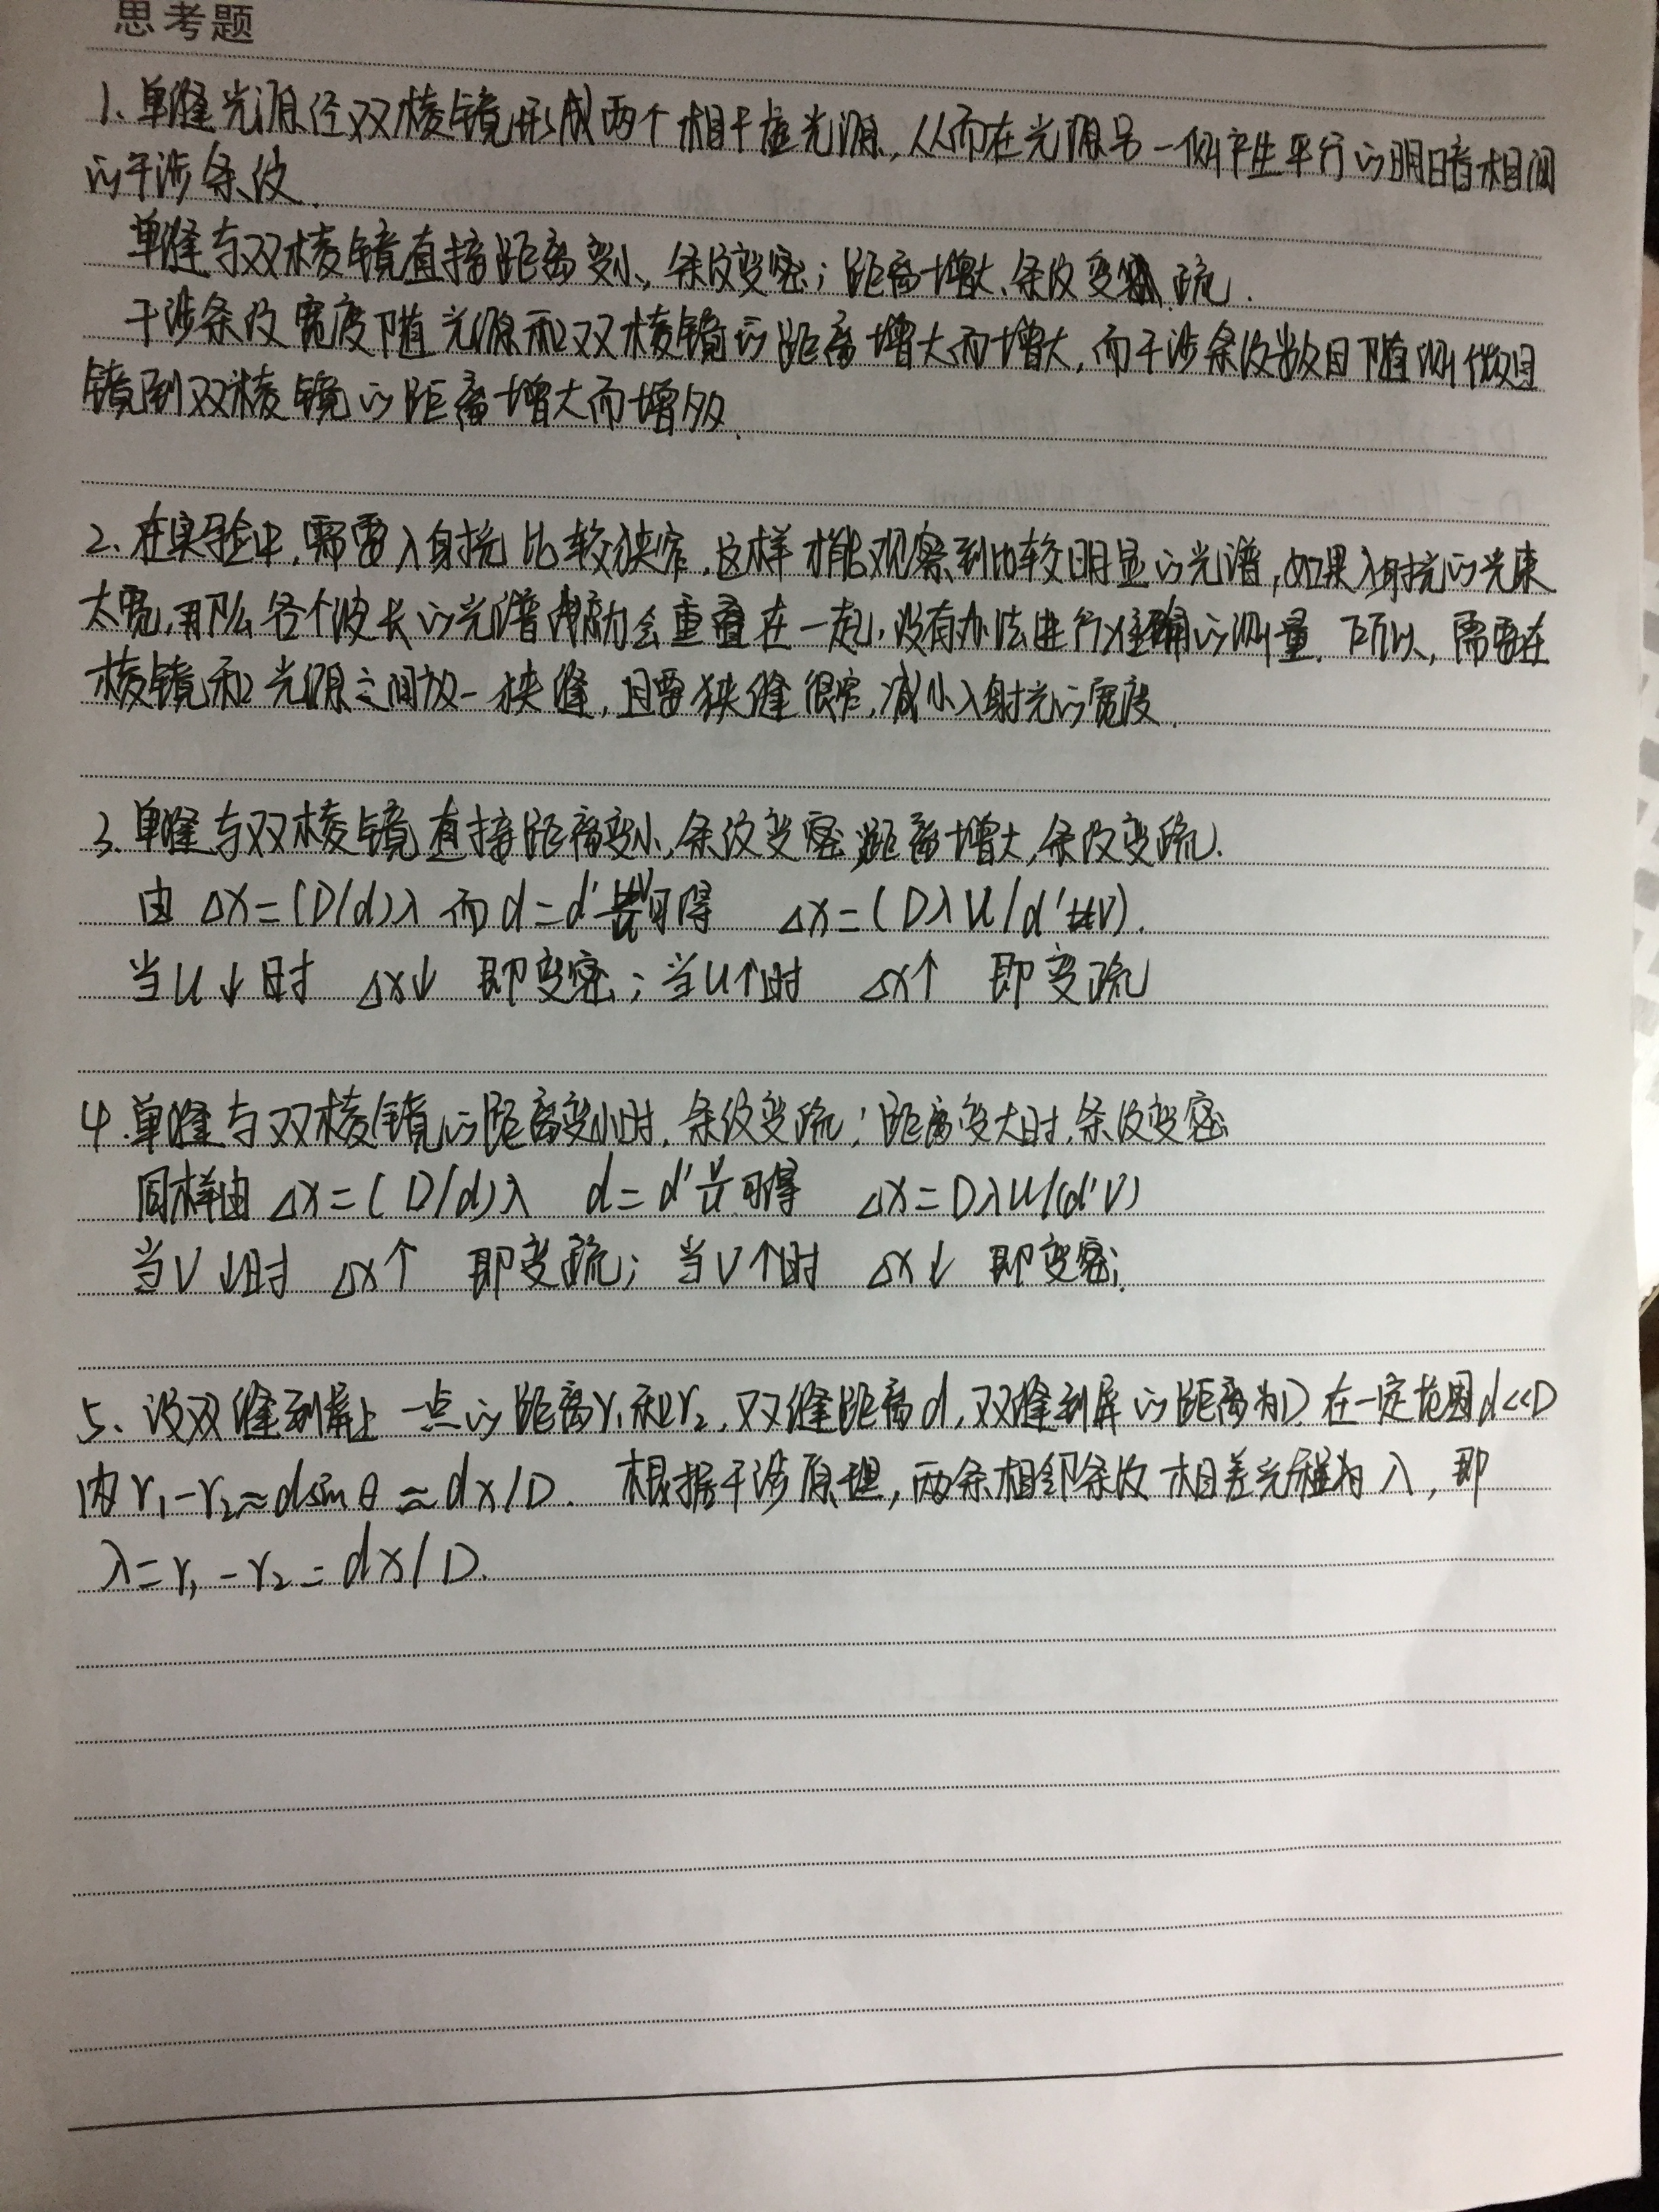 思考题
1、单缝光源经双棱镜形成两个相干虚光源,从而在光源另一侧产生平行的明暗相间
的干涉条纹.
单缝与双棱镜直接距离变小,条纹变密;距离增大,条纹变疏.
干涉条纹宽度随光源和双棱镜的距离增大而增大,而干涉条纹数目随测微目
镜到双棱镜的距离增大而增多.
2、在实验中,需要入射光比较狭窄,这样才能观察到比较明显的光谱,如果入射光的光束
太宽,那么各个波长的光谱就会重叠在一起,没有办法进行准确的测量.所以,需要在
棱镜和光源之间放一狭缝,且要狭缝很窄,减小入射光的宽度.
3、单缝与双棱镜直接距离变小,条纹变密;距离增大,条纹变疏.
由 Δx=(D/d)λ 而d=d' 可得 Δx=(DλU/d'V).
当U↓时 Δx↓ 即变密;当U↑时 Δx↑ 即变疏
4.单缝与双棱镜的距离变小时,条纹变疏;距离变大时,条纹变密
同样由 Δx=(D/d)λ d=d'V/U可得 Δx=DλU/(d'V)
当V↓时 Δx↑ 即变疏;当V↑时 Δx↓ 即变密;
5、设双缝到屏上一点的距离r₁和r₂,双缝距离d,双缝到屏的距离为D 在一定范围d<<D
内r₁-r₂≈dsinθ≈dx/D. 根据干涉原理,两条相邻条纹相差光程为λ,即
λ=r₁-r₂=dx/D.